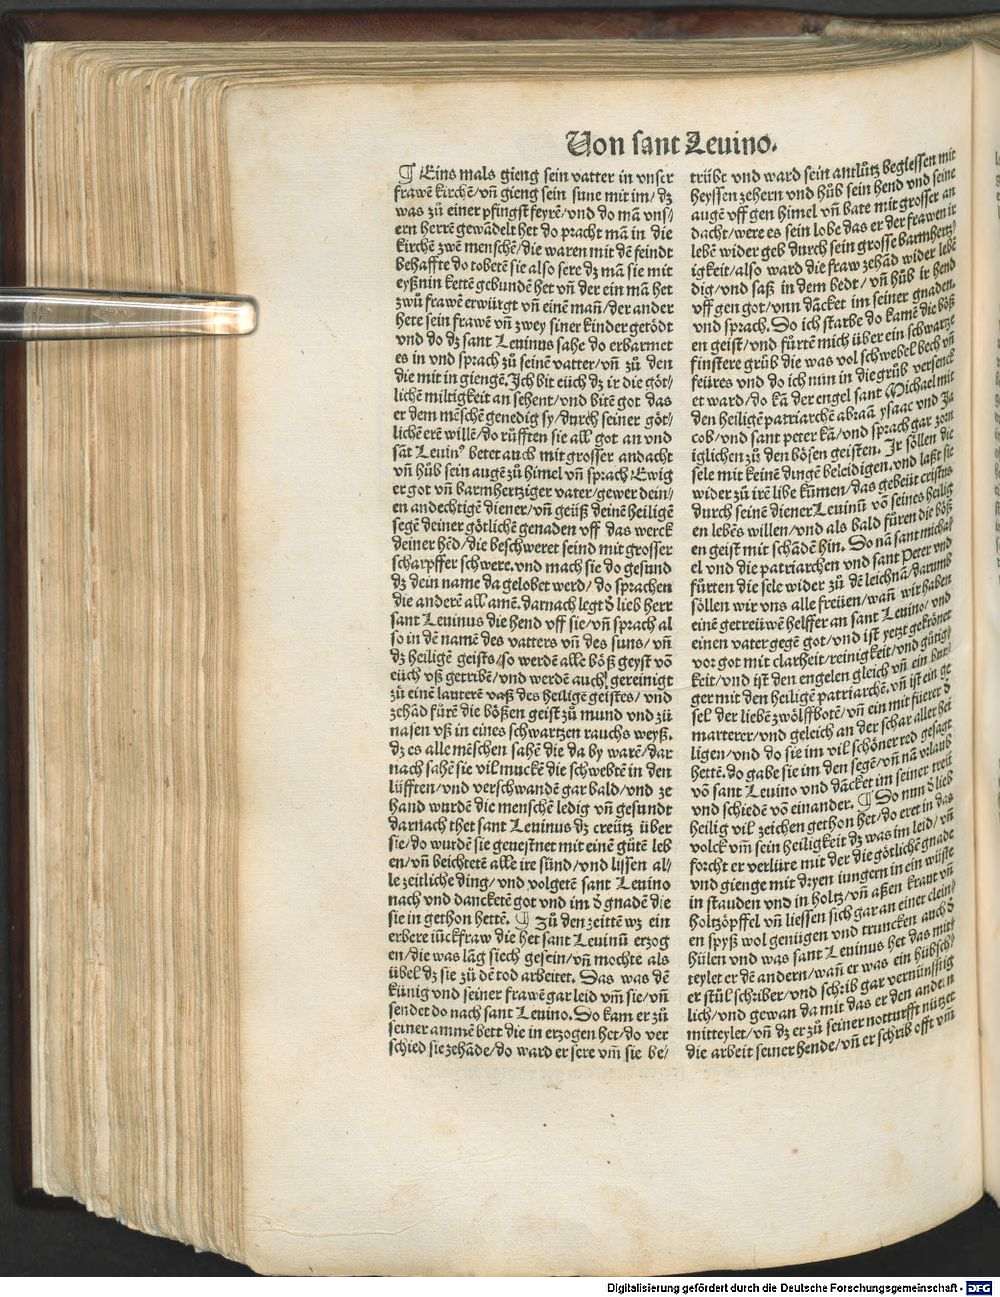 Von sant Leuino.
¶ Eins mals gieng sein vatter in vnser
frawē kirchē/vñ gieng sein sune mit im/ dz
was zů einer pfingst feyrē/vnd do mā vns/
ern herrē gewādelt het do pracht mā in die
kirchē zwē menschē/die waren mit dē feindt
behaffte do tobetē sie also sere dz mā sie mit
eyßnin kettē gebundē het vñ der ein mā het
zwů frawē erwürgt vñ einē mañ/der ander
hete sein frawē vñ zwey siner kinder getödt
vnd do dz sant Leuinus sahe do erbarmet
es in vnd sprach zů seinē vatter/vñ zů den
die mit in giengē. Ich bit eüch dz ir die göt/
lichē miltigkeit an sehent/vnd bitē got das
er dem mēschē genedig sy/durch seiner göt/
lichē erē willē/do růfften sie all got an vnd
sāt Leuinꝰ betet auch mit grosser andacht
vñ hůb sein augē zů himel vñ sprach Ewig
er got vñ barmhertziger vater/gewer dein/
en andechtigē diener/vñ geüß deinē heiligē
segē deiner götlichē genaden vff das werck
deiner hēd/die beschweret seind mit grosser
scharpffer schwere. vnd mach sie do gesund
dz dein name da gelobet werd/ do sprachen
die anderē all amē. darnach legt d̄ lieb herr
sant Leuinus die hend vff sie/vñ sprach al
so in dē namē des vatters vñ des suns/ vñ
dz heiligē geists/so werdē alle böß geyst vō
eüch vß getribē/vnd werdē auch gereinigt
zů einē lauterē vaß des heiligē geistes/ vnd
zehād fürē die bößen geist zů mund vnd zů
nasen vß in eines schwartzen rauchs weyß.
dz es alle mēschen sahē die da by warē/dar
nach sahē sie vil muckē die schwebtē in den
lüfften/vnd verschwandē gar bald/vnd ze
hand wurdē die menschē ledig vñ gesundt
darnach thet sant Leuinus dz creütz über
sie/do wurdē sie genestnet mit einē gůtē leb
en/vñ beichtetē alle ire sünd/vnd lissen al/
le zeitliche ding/ vnd volgetē sant Leuino
nach vnd dancketē got vnd im d̄ gnadē die
sie in gethon hettē. ¶ Zů den zeittē wz ein
erbere iückfraw die het sant Leuinū erzog
en/die was lāg siech gesein/vñ mochte als
übel dz sie zů dē tod arbeitet. Das was dē
künig vnd seiner frawē gar leid vm̄ sie/vñ
sendet do nach sant Leuino. Do kam er zů
seiner ammē bett die in erzogen het/do ver
schied sie zehāde/do ward er sere vm̄ sie be/
trübt vnd ward sein antlütz beglessen mit
heyssen zehern vnd hůb sein hend vnd seine
augē vff gen himel vñ bate mit grosser an
dacht/were es sein lobe das er der frawen ir
lebē wider geb durch sein grosse barmhertz/
igkeit/also ward die fraw zehād wider lebē
dig/vnd saß in dem bedt/ vñ hůb ir hend
vff gen got/vnn dācket im seiner gnaden.
vnd sprach. Do ich starbe do kamē die böß
en geist/ vnd fürtē mich über ein schwartze
finstere grůb die was vol schwebel bech vñ
feüres vnd do ich nun in die grůb versenck
et ward/do kā der engel sant Michael mit
den heiligē patriarchē abraā ysaac vnd Ja
cob/vnd sant peter kā/vnd sprach gar zorn
iglichen zů den bösen geistē. Ir söllen die
sele mit keinē dingē beleidigen. vnd laßt sie
wider zů irē libe kūmen/das gebeüt cristus
durch seinē diener Leuinū vō seines heilig
en lebēs willen/vnd als bald fůren die böß
en geist mit schādē hin. Do nā sant micha/
el vnd die patriarchen vnd sant Peter vnd
fürten die sele wider zů dē leichnā/darumb
söllen wir vns alle freüen/wañ wir haben
einē getreüwē helffer an sant Leuino/ vnd
einen vater gegē got/vnd ist yetzt gekrönet
vor got mit clarheit/reinigkeit/vnd gütig/
keit/vnd ist den engelen gleich vñ ein bur/
ger mit den heiligē patriarchē. vñ ist ein ge
sel der liebē zwölffbotē/vñ ein mit füerer d̄
marterer/vnd geleich an der schar aller hei
ligen/vnd do sie im vil schöner red gesagt
hettē. do gabe sie im den segē/vñ nā vrlaub
vō sant Leuino vnd dācket im seiner treü
vnd schiedē vō einander. ¶ Do nun d̄ lieb
heilig vil zeichen gethon het/do eret in das
volck vm̄ sein heiligkeit dz was im leid/vñ
forcht er verlüre mit der die götlichē gnade
vnd gienge mit dryen iungern in ein wüste
in stauden vnd in holtz/vñ aßen kraut vñ
holtzöpffel vñ liessen sich gar an einer clein/
en spyß wol genügen vnd truncken auch d̄
hülen vnd was sant Leuinus het das mit/
teylet er dē andern/wañ er was ein hübsch/
er stůl schriber/vnd schrib gar vernünfftig
lich/vnd gewan da mit das er den andern
mitteylet/vñ dz er zů seiner notturfft nützet
die arbeit seiner hende/vñ er schrib offt vm̄
Digitalisierung gefördert durch die Deutsche Forschungsgemeinschaft - DFG